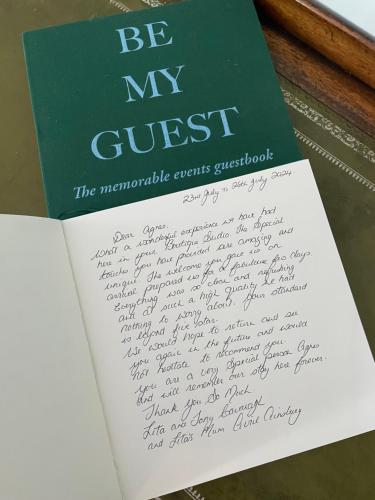 BE
MY
GUEST
The memorable events guestbook
23rd July to 26th July 2024
Dear Agnes,
What a wonderful experience we have had
here in your Boutique Studio. The special
touches you have provided are amazing and
unique. The welcome you gave us on
arrival prepared us for a fabulous few days.
Everything was so clean and refreshing
and at such a high quality we had
nothing to worry about. Your standard
is beyond five star.
We would hope to return and see
you again in the future and would
not hesitate to recommend you.
You are a very special person Agnes
and will remember our stay here forever.
Thank you so much
Lita and Tony
and Lita's Mum